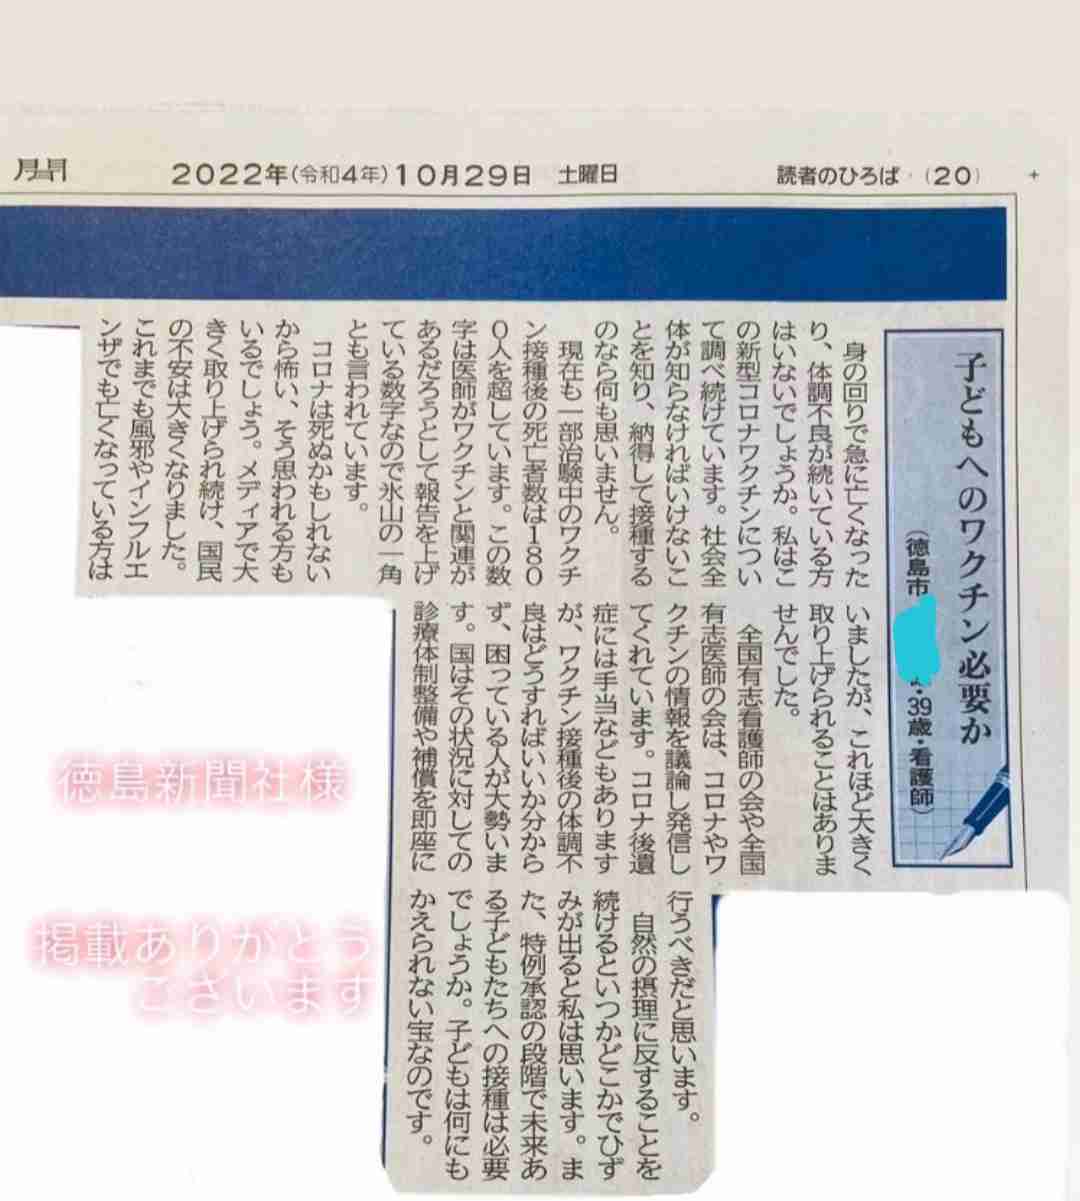 2022年(令和4年)10月29日 土曜日
読者のひろば (20)
子どもへのワクチン必要か
(徳島市
・39歳・看護師)
身の回りで急に亡くなった
り、体調不良が続いている方
はいないでしょうか。私はこ
の新型コロナワクチンについ
て調べ続けています。社会全
体が知らなければいけないこ
とを知り、納得して接種する
のなら何も思いません。
現在も一部治験中のワクチ
ン接種後の死亡者数は180
0人を超しています。この数
字は医師がワクチンと関連が
あるだろうとして報告を上げ
ている数字なので氷山の一角
とも言われています。
コロナは死ぬかもしれない
から怖い、そう思われる方も
いるでしょう。メディアで大
きく取り上げられ続け、国民
の不安は大きくなりました。
これまでも風邪やインフルエ
ンザでも亡くなっている方は
いましたが、これほど大きく
取り上げられることはありま
せんでした。
全国有志看護師の会や全国
有志医師の会は、コロナやワ
クチンの情報を議論し発信し
てくれています。コロナ後遺
症には手当などもあります
が、ワクチン接種後の体調不
良はどうすればいいか分から
ず、困っている人が大勢いま
す。国はその状況に対しての
診療体制整備や補償を即座に
行うべきだと思います。
自然の摂理に反することを
続けるといつかどこかでひず
みが出ると私は思います。ま
た、特例承認の段階で未来あ
る子どもたちへの接種は必要
でしょうか。子どもは何にも
かえられない宝なのです。
徳島新聞社様
掲載ありがとう
ございます